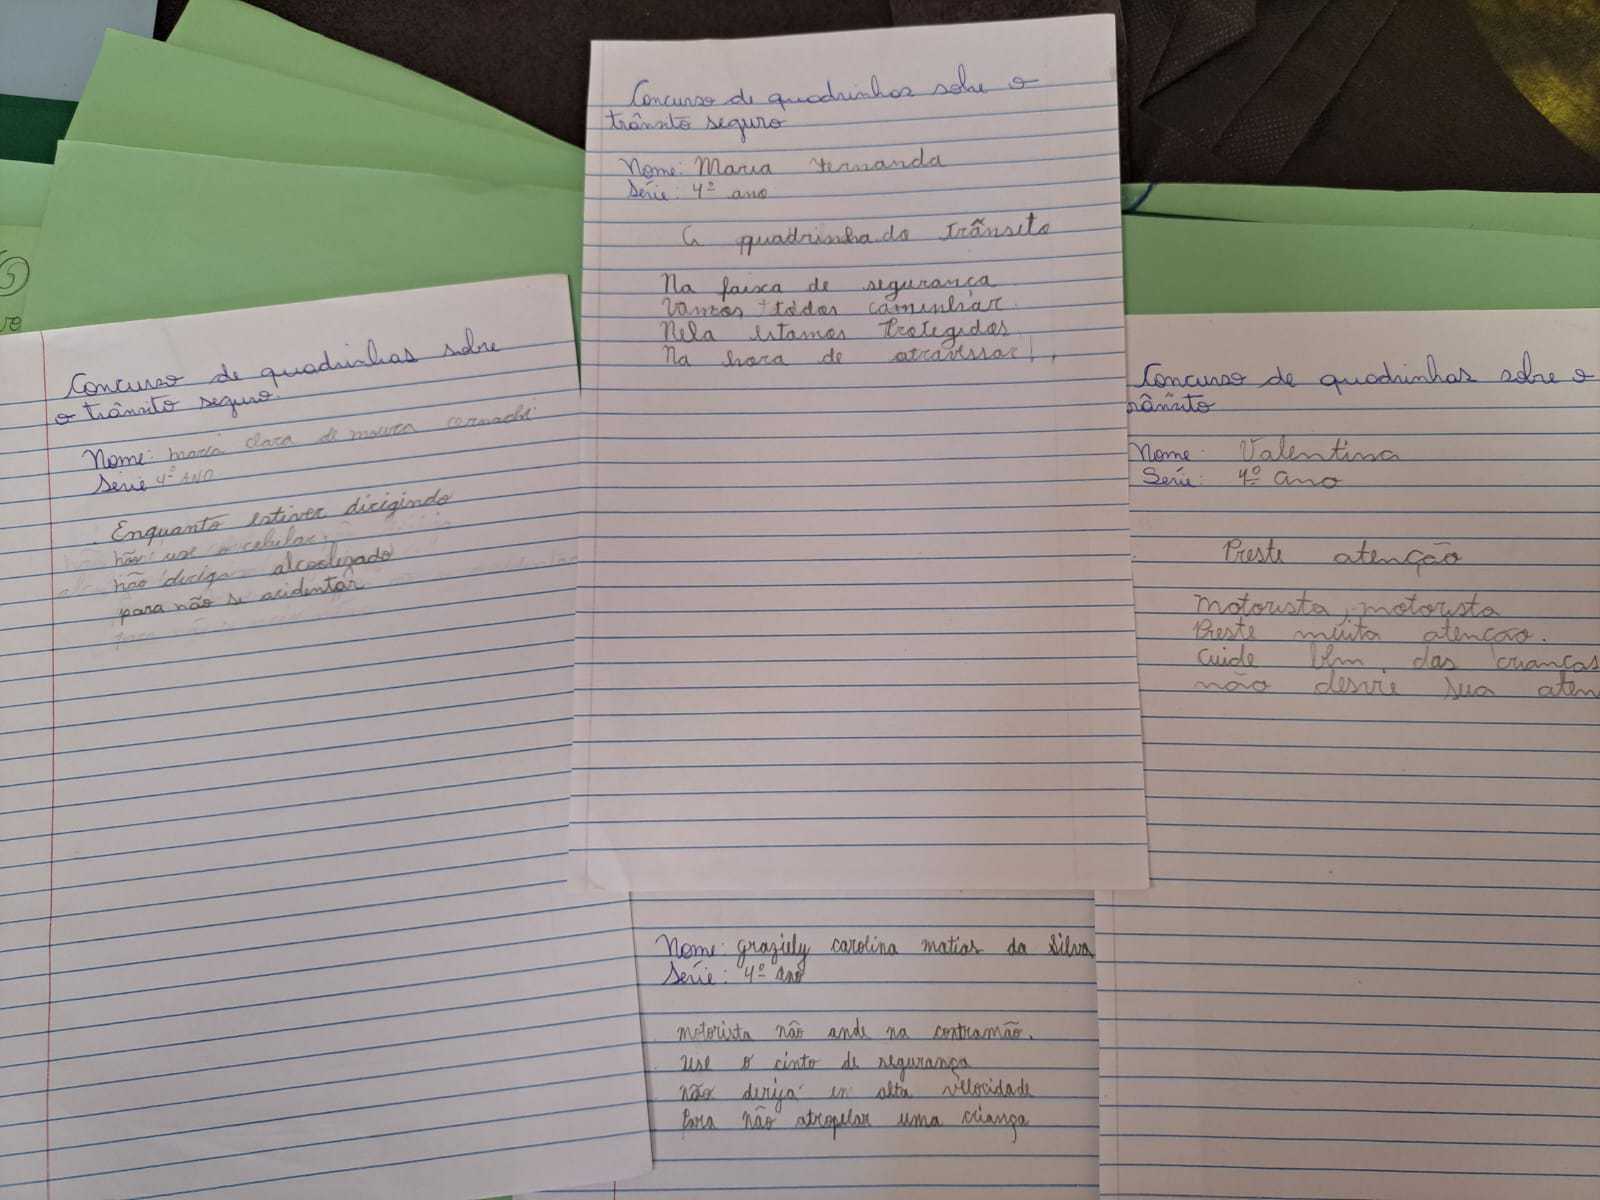 Concurso de quadrinhas sobre
o trânsito seguro.
Nome: maria clara de moura
Série 4º ANO
Enquanto estiver dirigindo
não use o celular,
não dirija alcoolizado
para não se acidentar
Concurso de quadrinhas sobre o
trânsito seguro
Nome: Maria Fernanda
Série: 4º ano
A quadrinha do trânsito
Na faixa de segurança
Vamos todos caminhar.
Nela estamos Protegidos
Na hora de atravessar!
Concurso de quadrinhas sobre o
rânsito
Nome: Valentina
Série: 4º Ano
Preste atenção
Motorista, motorista
Preste muita atençao.
Cuide bem das crianças
não desvie sua aten
Nome: Graziely carolina matias da Silva
Série: 4º ano
motorista não ande na contramão.
Use o cinto de segurança
não derija en alta velocidade
Para não atropelar uma criança